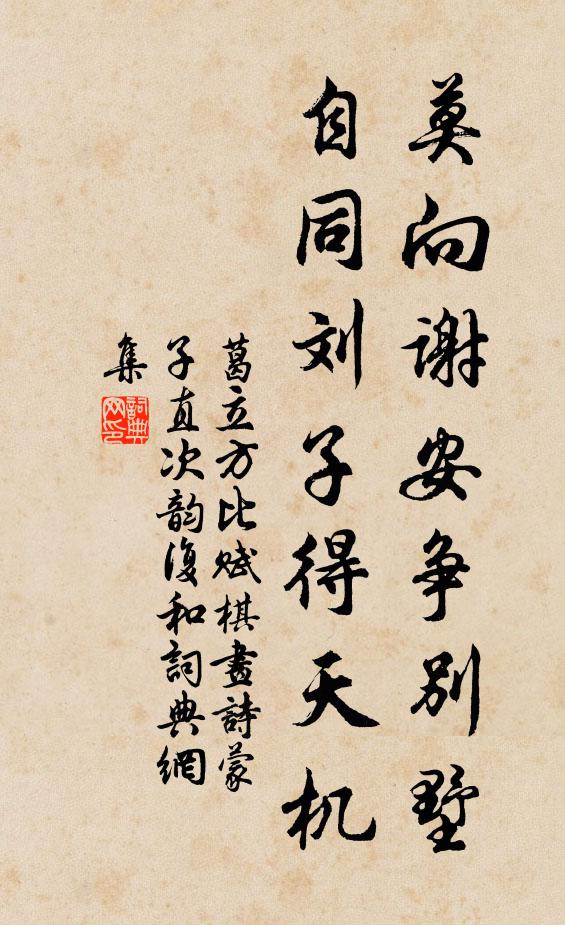 莫向谢安争别墅
自同刘子得天机
葛立方比赋棋畫詩蒙
子直次韵復和詞典網
集
詞典
网印